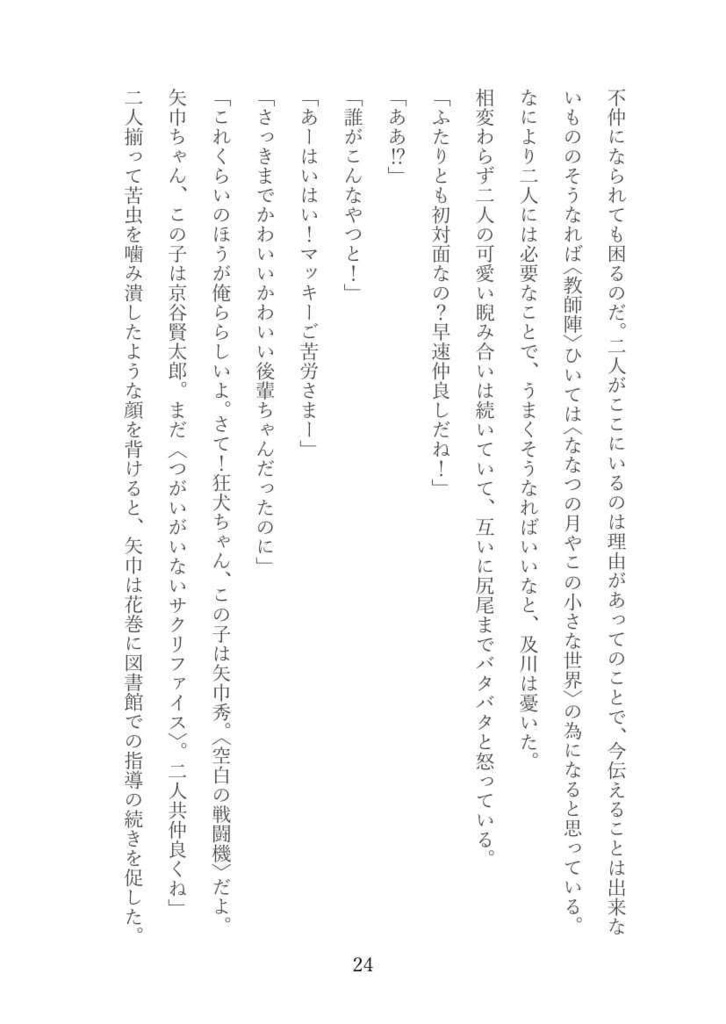 不仲になられても困るのだ。二人がここにいるのは理由があってのことで、今伝えることは出来な
いもののそうなれば〈教師陣〉ひいては〈ななつの月やこの小さな世界〉の為になると思っている。
なにより二人には必要なことで、うまくそうなればいいなと、及川は憂いた。
相変わらず二人の可愛い睨み合いは続いていて、互いに尻尾までバタバタと怒っている。
「ふたりとも初対面なの？早速仲良しだね！」
「ああ⁉」
「誰がこんなやつと！」
「あーはいはい！マッキーご苦労さまー」
「さっきまでかわいいかわいい後輩ちゃんだったのに」
「これくらいのほうが俺ららしいよ。さて！狂犬ちゃん、この子は矢巾秀。〈空白の戦闘機〉だよ。
矢巾ちゃん、この子は京谷賢太郎。まだ〈つがいがいないサクリファイス〉。二人共仲良くね」
二人揃って苦虫を噛み潰したような顔を背けると、矢巾は花巻に図書館での指導の続きを促した。
24